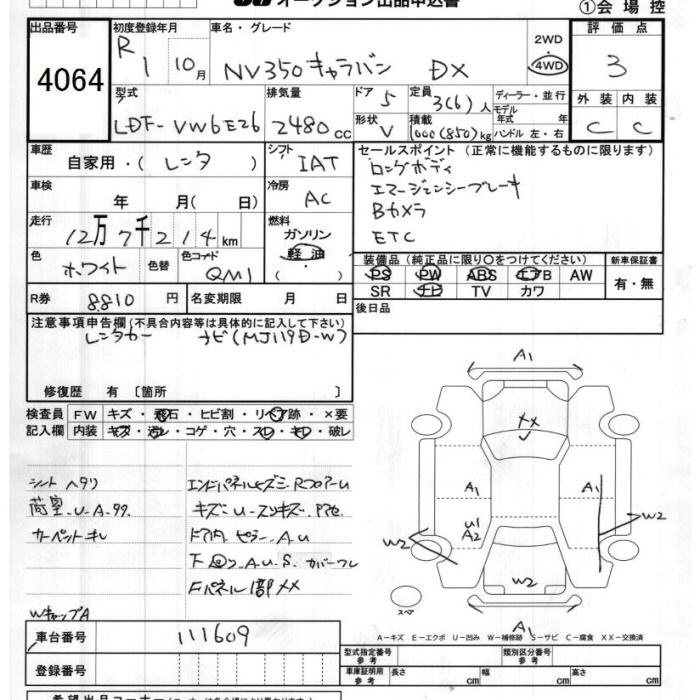 オークション出品申込書
①会場控
出品番号
4064
初度登録年月
R1 10月
車名・グレード
NV350キャラバン DX
2WD
4WD
評価点
3
型式
LDF-VW6E26
排気量
2480cc
ドア 5
形状 V
定員 3(6)人
積載 1000(850)kg
ディーラー・並行
モデル年式 年式
ハンドル 左・右
外装 内装
C C
車歴
自家用・(レンタ)
シフト IAT
セールスポイント (正常に機能するものに限ります)
ロングボディ
エマージェンシーブレーキ
Bカメラ
ETC
車検 年 月( 日)
冷房 AC
走行 12万7千214km
燃料 ガソリン
軽油
色 ホワイト 色替 色コード QM1
装備品 (純正品に限り○をつけてください)
新車保証書
PS PW ABS エアB AW
有・無
SR ナビ TV カワ
R券 8,810円 名変期限 月 日
後日品
注意事項申告欄(不具合内容等は具体的に記入して下さい)
レンタカー ナビ(MJ119D-W)
修復歴 有 〔箇所 〕
検査員 FW キズ・飛石・ヒビ割・リペア跡・×要
記入欄 内装 キズ・汚レ・コゲ・穴・スレ・キレ・破レ
シートヘタリ
荷室.U.A.ササ.
カーペットキレ
WキャップA
エンドパネルヒズミ.Rフロアー.U
キズ
ドア内 ピラー.A.U
下回り.A.U.S. カバーワレ
Fパネル
A1
XX
A1
A1
U1
A2
W2
W2
W2
A1
スペア
A-キズ E-エクボ U-凹み W-補修跡 S-サビ C-腐食 XX-交換済
車台番号 111609
登録番号
型式指定番号 参考
類別区分番号 参考
車庫証明用 参考 長さ cm 幅 cm 高さ cm